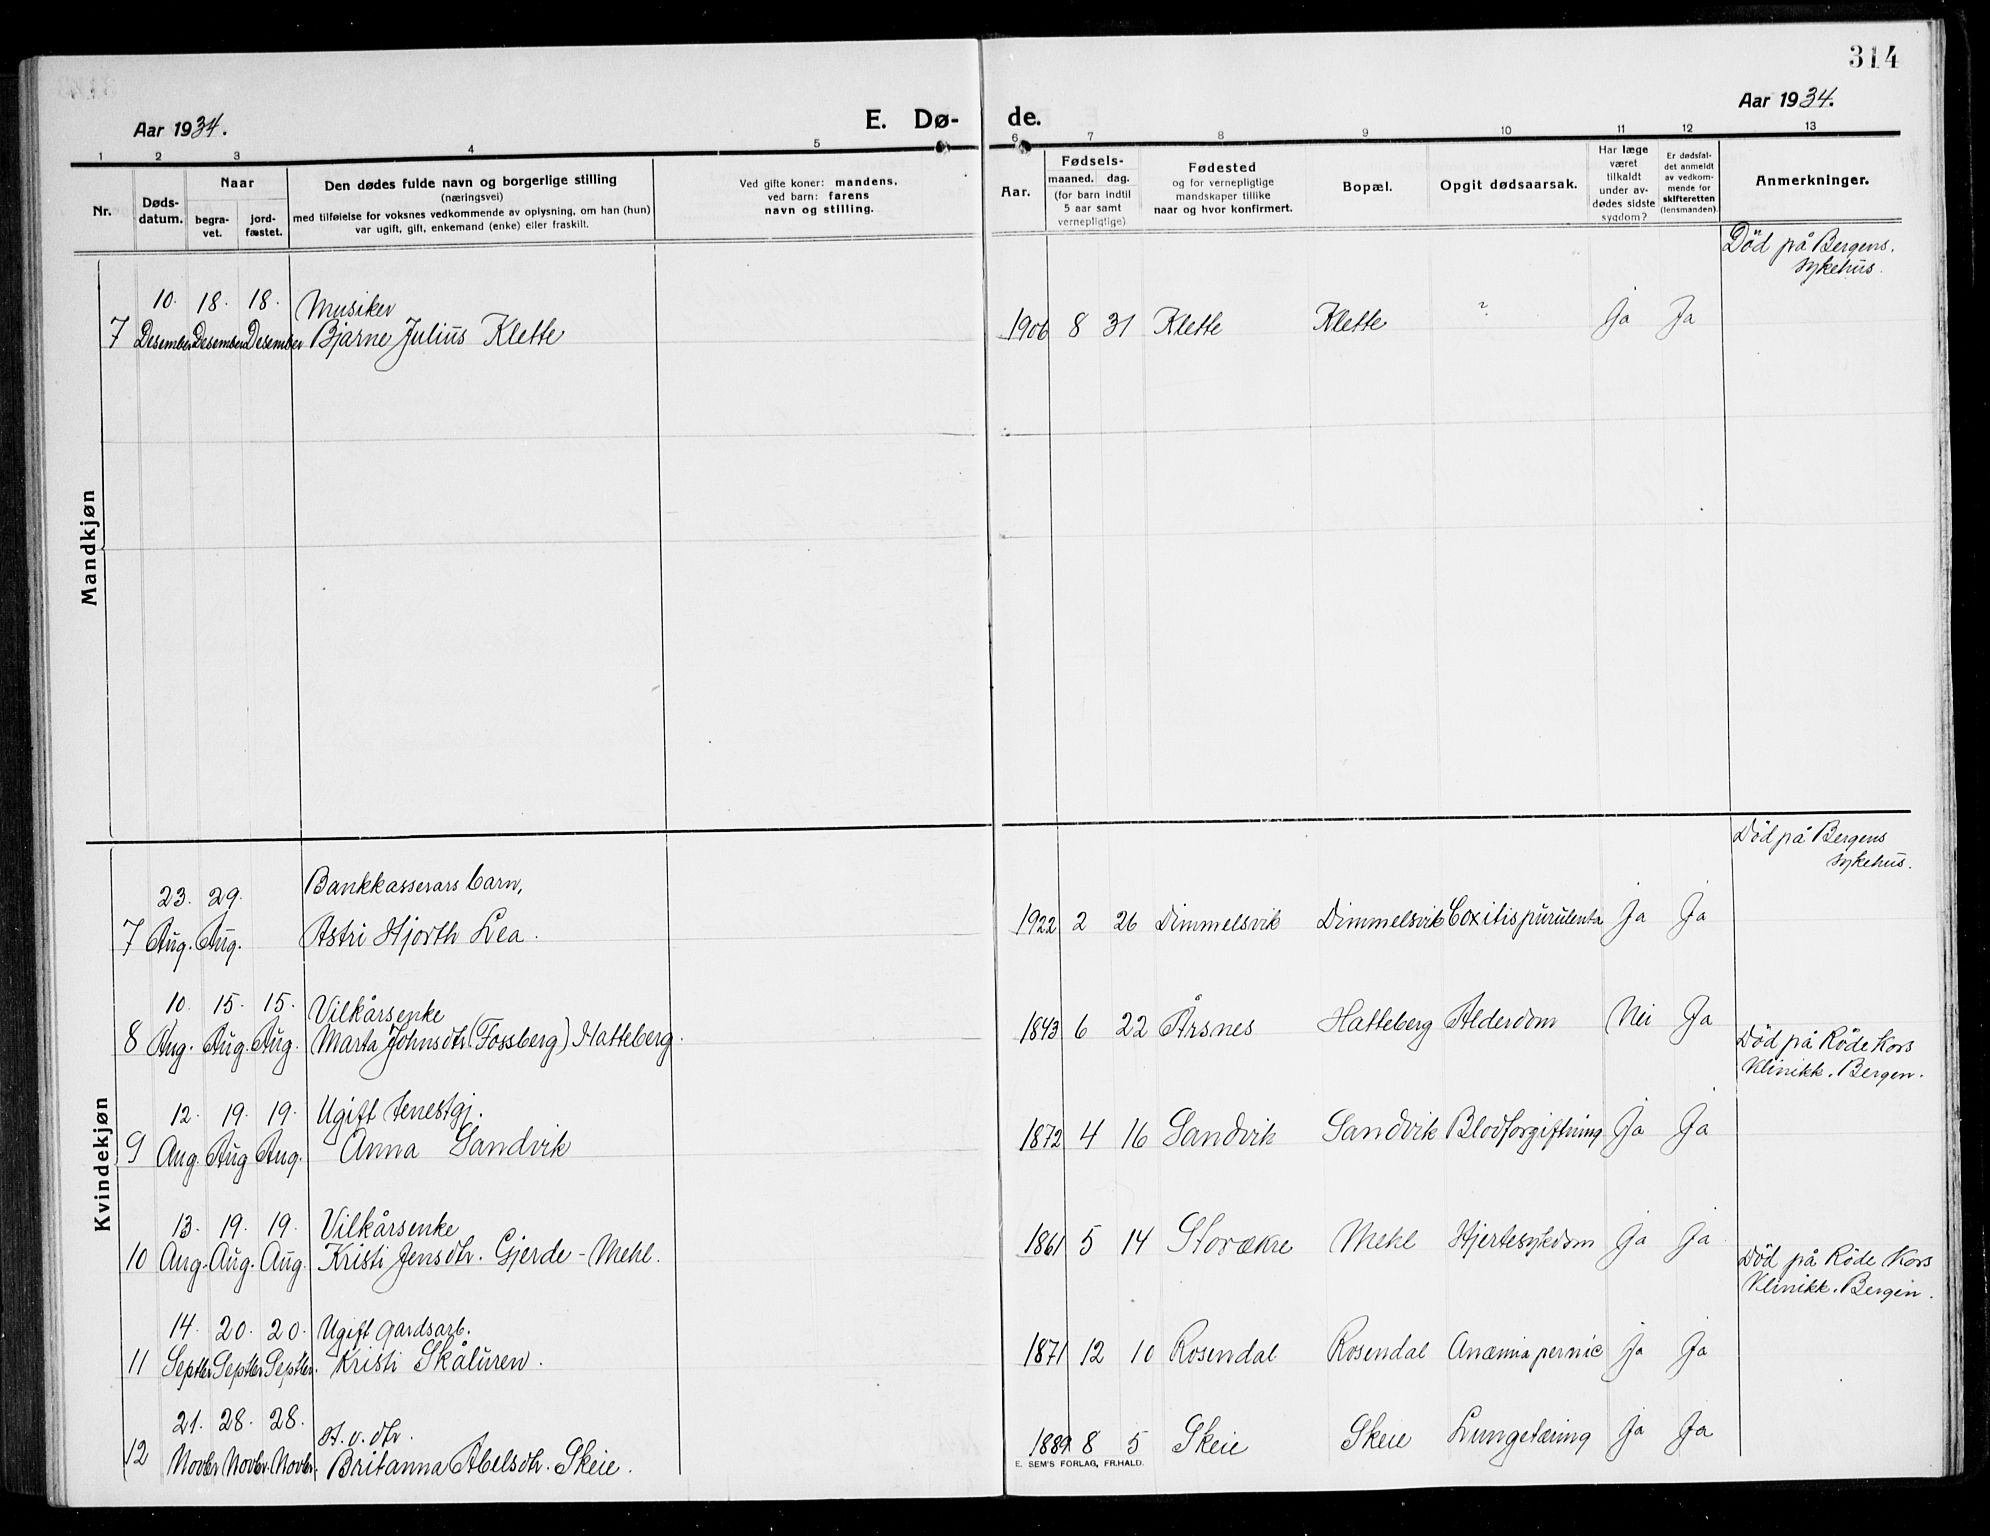 314
Aar 1934.
E. Dø-
de.
Aar 1934.
1 2 3 4 5 6 7 8 9 10 11 12 13
Nr.
Døds-
datum.
Naar
begra-
vet.
jord-
fæstet.
Den dødes fulde navn og borgerlige stilling
(næringsvei)
med tilføielse for voksnes vedkommende av oplysning, om han (hun)
var ugift, gift, enkemand (enke) eller fraskilt.
Ved gifte koner: mandens,
ved barn: farens
navn og stilling.
Aar.
Fødsels-
maaned. dag.
(for barn indtil
5 aar samt
vernepligtige)
Fødested
og for vernepligtige
mandskaper tillike
naar og hvor konfirmert.
Bopæl.
Opgit dødsaarsak.
Har læge
været
tilkaldt
under av-
dødes sidste
sygdom?
Er dødsfal-
det anmeldt
av vedkom-
mende for
skifteretten
(lensmanden).
Anmerkninger.
Mandkjøn
Død på Bergens
sykehus.
10. 18. 18. Musiker
7 Desember Desember Desember Bjarne Julius Klette 1906 8 31 Klette Klette ? Ja Ja
Kvindekjøn
Død på Bergens
sykehus.
23. 29. Bankkasserars barn,
7 Aug. Aug. Astri Hjorth Lea. 1922 2 26 Dimmelsvik Dimmelsvik Coxitis purulenta Ja Ja
10. 15. 15. Vilkårsenke
8 Aug. Aug. Aug. Marta Johnsdtr. (Fossberg) Hatteberg. 1843 6 22 Årsnes Hatteberg Alderdom Nei Ja
Død på Røde Kors
Klinikk. Bergen.
12. 19. 19. Ugift tenestgj.
9 Aug. Aug Aug. Anna Sandvik 1872 4 16 Sandvik Sandvik Blodforgiftning Ja Ja
13. 19. 19. Vilkårsenke
10 Aug. Aug. Aug. Kristi Jensdtr. Gjerde - Mehl. 1861 5 14 Storækre Mehl Hjertesykdom Ja Ja
Død på Røde Kors
Klinikk. Bergen.
14. 20. 20. Ugift gardsarb.
11 Septbr Septbr Septbr. Kristi Skåluren. 1871 12 10 Rosendal Rosendal Anæmia pernic Ja Ja
21. 28. 28.
12 Novbr Novbr. Novbr. Britanna Abelsdtr. Skeie. 1889 8 5 Skeie Skeie Lungetæring Ja Ja
E. SEM'S FORLAG, FR.HALD.